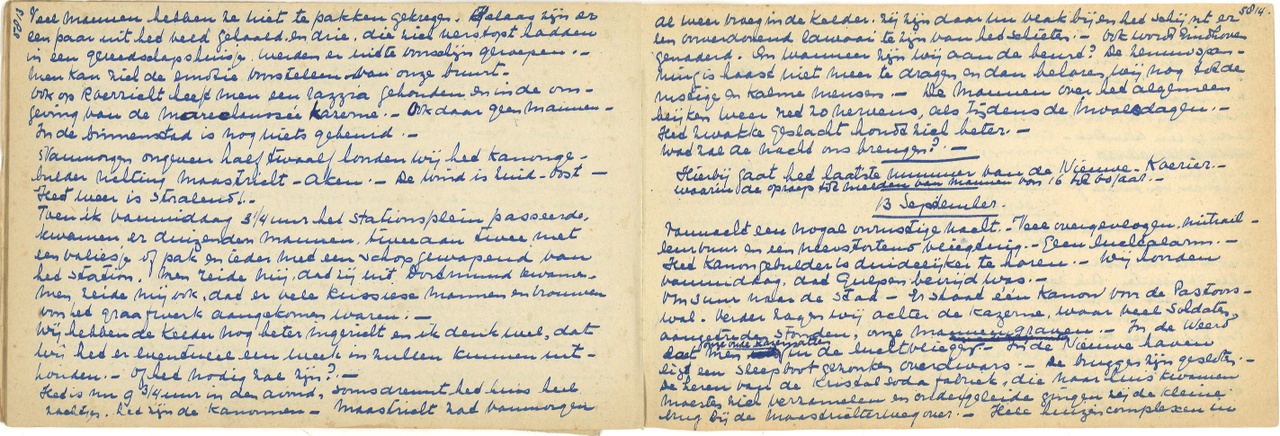 5813
Veel mannen hebben ze niet te pakken gekregen. Helaas zijn er
een paar uit het veld gehaald en drie, die zich verstopt hadden
in een gereedschapshuisje, werden er uit te voorschijn geroepen. —
Men kan zich de emotie voorstellen van onze buurt. —
Ook op Roerzicht heeft men een razzia gehouden en in de om-
geving van de Marechaussée Kazerne. — Ook daar geen mannen —
In de binnenstad is nog niets gebeurd. —
Vanmorgen ongeveer half twaalf hoorden wij het kanonge-
bulder richting Maastricht - Aken. — De wind is Zuid-Oost —
Het weer is Stralend. —
Toen ik vanmiddag 3¼ uur het Stationsplein passeerde,
kwamen er duizenden mannen, twee aan twee, met
een valiesje of pak en ieder met een schop gewapend van
het Station. Men zeide mij, dat zij uit Dortmund kwamen.
Men zeide mij ook, dat er vele Russiese mannen en vrouwen
voor het graafwerk aangekomen waren. —
Wij hebben de Kelder nog beter ingericht en ik denk wel, dat
wij het er eventueel een week in zullen kunnen uit-
houden. — Of het nodig zal zijn? —
Het is nu 9¾ uur in den avond, soms dreunt het huis heel
zachtjes. Het zijn de kanonnen — Maastricht zat vanmorgen
5814.
al weer vroeg in de Kelder. Zij zijn daar nu vlak bij en het schijnt er
een oorverdovend lawaai te zijn van het schieten. — Ook wordt Eindhoven
genaderd. En wanneer zijn wij aan de beurt? De zenuwspan-
ning is haast niet meer te dragen en dan behoren wij nog tot de
rustige en kalme mensen. — De mannen over het algemeen
lijken weer net zo nerveus, als tijdens de Meidagen. —
Het zwakke geslacht houdt zich beter. —
Wat zal de nacht ons brengen? —
Hierbij gaat het laatste nummer van de Nieuwe Koerier. —
waarin de oproep tot melden van mannen van 16 tot 60 jaar. —
13 September.
Vannacht een nogal onrustige nacht. — Veel overgevlogen, mitrail-
leurvuur en een neerstortend vliegtuig. — Geen luchtalarm. —
Het Kanongebulder is duidelijker te horen. — Wij hoorden
vanmiddag, dat Gulpen bevrijd was. —
Om 5 uur naar de Stad — Er stond een Kanon voor de Pastoors-
wal. Verder zagen wij achter de Kazerne, waar veel Soldaten
aangetreden stonden, onze mannen graven. — In de Weerd
laat men in de lucht vliegen. — In de Nieuwe haven
ligt een Sleepboot gezonken overdwars. — De bruggen zijn gesloten. —
De heren van de Kristalsoda fabriek, die naar huis kwamen
moesten zich verzamelen en onder geleide gingen zij de kleine
brug bij de Maastrichterweg over. — Hele huizencomplexen in